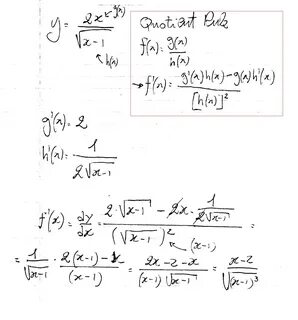 y = 2x / √(x-1)
g(x)
h(x)
Quotient Rule
f(x) = g(x) / h(x)
→ f'(x) = (g'(x)h(x) - g(x)h'(x)) / [h(x)]²
g'(x) = 2
h'(x) = 1 / (2√(x-1))
f'(x) = dy/dx = (2·√(x-1) - 2x · 1/(2√(x-1))) / (√(x-1))² =
(x-1)
= 1/√(x-1) · (2(x-1) - x) / (x-1) = (2x-2-x) / ((x-1)√(x-1)) = (x-2) / √(x-1)³